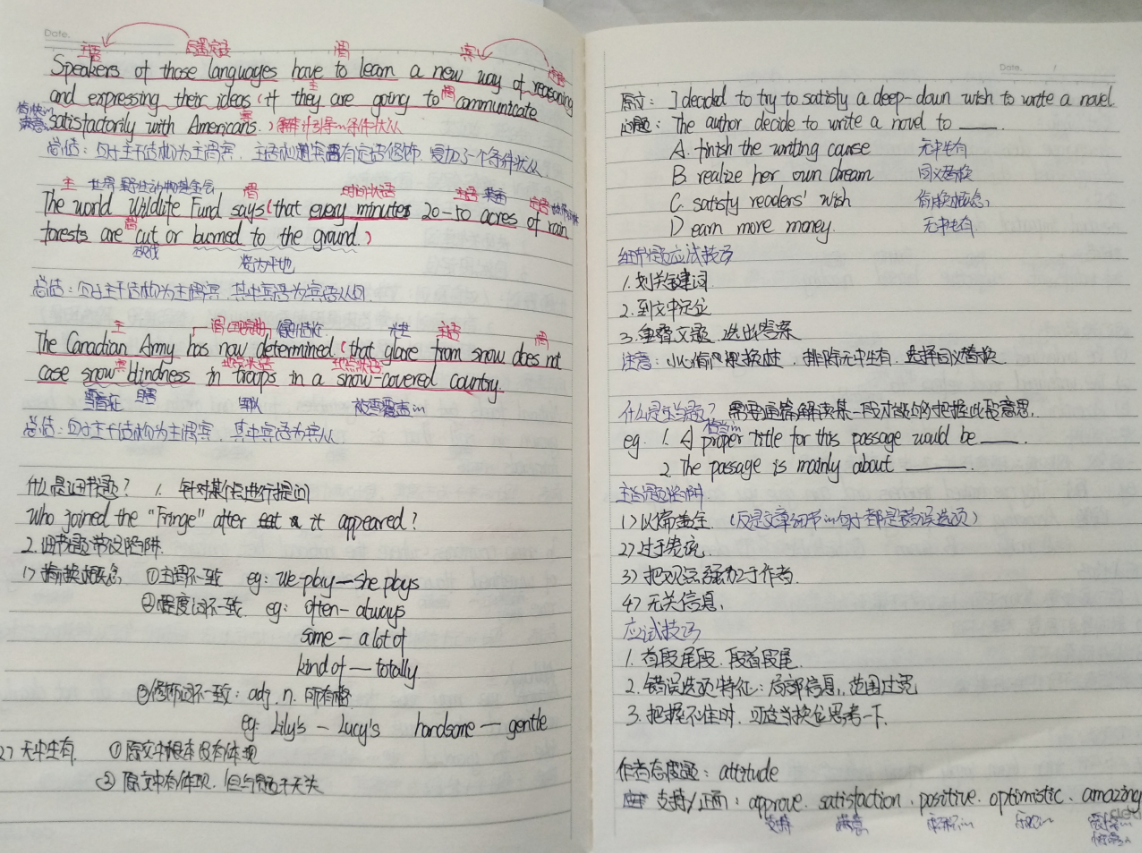 Date.
主语 后置定语 谓 宾 定语
Speakers of those languages have to learn a new way of reasoning
主 谓
and expressing their ideas (if they are going to communicate
宾
satisfactorily with Americans.)
总结：句子主干结构为主谓宾，主语和宾语有定语修饰，复加了一个条件状从
主 世界野生动物基金会 谓 时间状语 主语 定语
The world Wildlife Fund says (that every minutes 20-50 acres of rain
谓
forests are cut or burned to the ground.)
夷为平地
总结：句子主干结构为主谓宾，其中宾语为宾语从句
主 谓 主语 谓
The Canadian Army has now determined (that glare from snow does not
宾 地点状语
case snow blindness in troops in a snow-covered country.
雪盲症 部队 被雪覆盖
总结：句子主干结构为主谓宾，其中宾语为宾从
什么是细节题？ 1. 针对某个点进行提问
Who joined the "Fringe" after it appeared?
2. 细节题常设陷阱.
1) 偷换概念 ①主谓不一致 eg: we play—she plays
②程度词不一致 eg: often - always
some — a lot of
kind of — totally
③修饰词不一致: adj. n. 所有格
eg: Lily's — Lucy's handsome — gentle
2) 无中生有 ①原文中根本没有体现
②原文中有体现，但与题干无关
Date. /
原文: I decided to try to satisfy a deep-down wish to write a novel
问题: The author decide to write a novel to ____.
A. finish the writing cause 无中生有
B realize her own dream 同义替换
C satisfy readers' wish 偷换概念
D earn more money. 无中生有
细节题应试技巧
1. 划关键词
2. 到文中定位
3. 重释文题，选出答案
注意: 小心偷换概念，排除无中生有，选择同义替换
什么是主旨题？ 需要通篇解读某一段才能够把握此段意思.
恰当
eg. 1. A proper title for this passage would be ____.
2. The passage is mainly about ______.
主旨题陷阱
1) 以偏盖全 (反是文章细节的句子都是错误选项)
2) 过于笼统.
3) 把观点强加于作者.
4) 无关信息.
应试技巧
1. 首段尾段，段首段尾.
2. 错误选项特征: 局部信息，范围过宽
3. 把握不住时，可适当换位思考一下.
作者态度题: attitude
支持/正面: approve. satisfaction. positive. optimistic. amazing
支持 满意